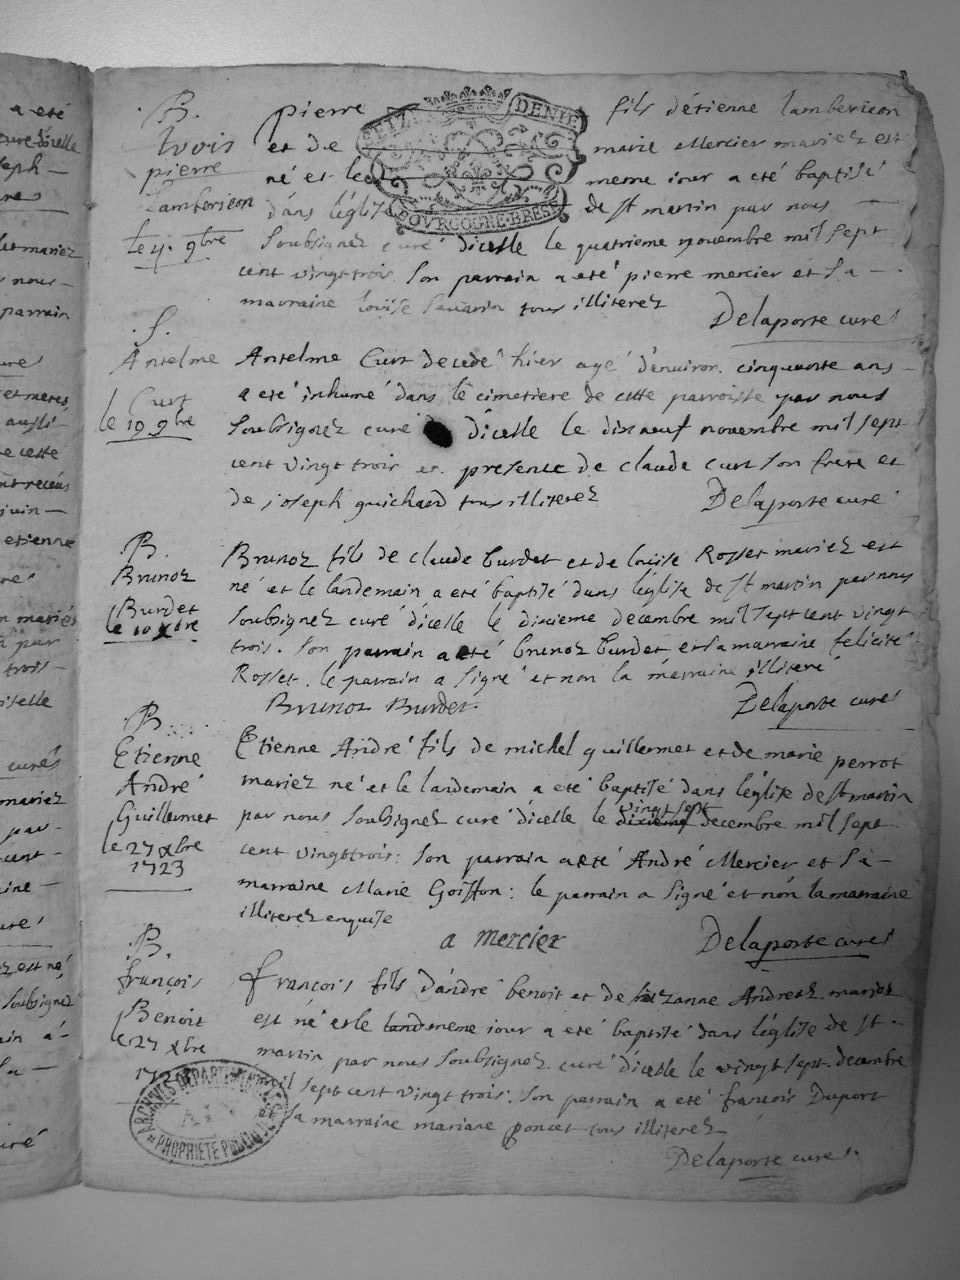 a eté
cure dicelle
seph —
mariez
s nous —
parrain
cure
et meres
aussi
cette
juin —
etienne
ré
mariés
par
trois —
curé
mariez
par
cent
aine —
curé
est né
soubsignez
ain a
sa —
curé
B.
pierre
Lambericon
le 4. 9bre
pierre fils détienne lambericon
SEIZE DENIE
et de marie Mercier mariez est
né et le meme iour a eté baptisé
dans léglise de st martin par nous —
BOVRGOGNE·BRESSE
soubsignez curé dicelle le quatrieme novembre mil sept
cent vingt trois son parrain a eté pierre mercier et sa —
marraine loüise savarin tous illiterez
Delaporte curé
S.
Antelme
Curt
le 19 9bre
Antelme Curt decedé hier agé d'environ cinquante ans —
a eté inhumé dans le cimetiere de cette parroisse par nous
soubsignez curé dicelle le dixneuf novembre mil sept
cent vingt trois en presence de claude curt son frere et
de joseph guichard tous illiterez
Delaporte curé
B.
Brunoz
Burdet
le 10 xbre
Brunoz fils de claude burdet et de loüise Rosset mariez est
né et le landemain a eté baptisé dans léglise de st martin par nous
soubsignez curé dicelle le dixieme decembre mil sept cent vingt
trois. son parrain a eté brunoz burdet et sa marraine felicité
Rosset. le parrain a signé et non la marraine illiteré
Brunoz Burdet.
Delaporte curé
B.
Etienne
André
Guillermet
le 27 xbre
1723
Etienne André fils de michel guillermet et de marie perrot
mariez né et le landemain a eté baptisé dans léglise de st martin
vingt sept
par nous soubsignez curé dicelle le dixieme decembre mil sept
cent vingt trois: son parrain a eté André Mercier et sa —
marraine Marie Goiffon: le parrain a signé et non la marraine
illiterez enquise
a mercier
Delaporte curé
B.
françois
Benoit
le 27 xbre
françois fils d'andré benoit et de suzanne Andrets mariez
est né et le landemene iour a eté baptisé dans léglise de st —
martin par nous soubsignez curé dicelle le vingt sept decembre
mil sept cent vingt trois. son parrain a eté françois Duport
et sa marraine mariane poncet tous illiterez
Delaporte curé
ARCHIVES DEPARTEMENTALES
AIN
PROPRIETE PUBLIQUE